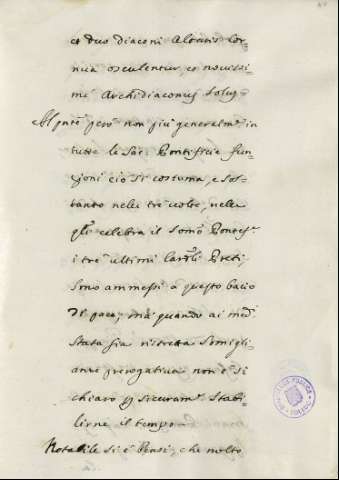 et duo diaconi Altaris Cor=
nua osculentur, et novissi=
mè Archidiaconus solus=
Al pñte però non più generalmᵉ in
tutte le Sac: Pontificie fun=
zioni ciò si costuma, e sol=
tanto nelle tre volte, nelle
qli celebra il Somõ Pontefᵉ
i tre ultimi Cardli Preti,
sono ammessi a questo bacio
di pace; mà quando ai med:
stata sia ristretta somigli=
ante prerogativa non è sì
chiaro sicuramᵉ stabi=
lirne il tempo
Notabile si è Pensi, che molto